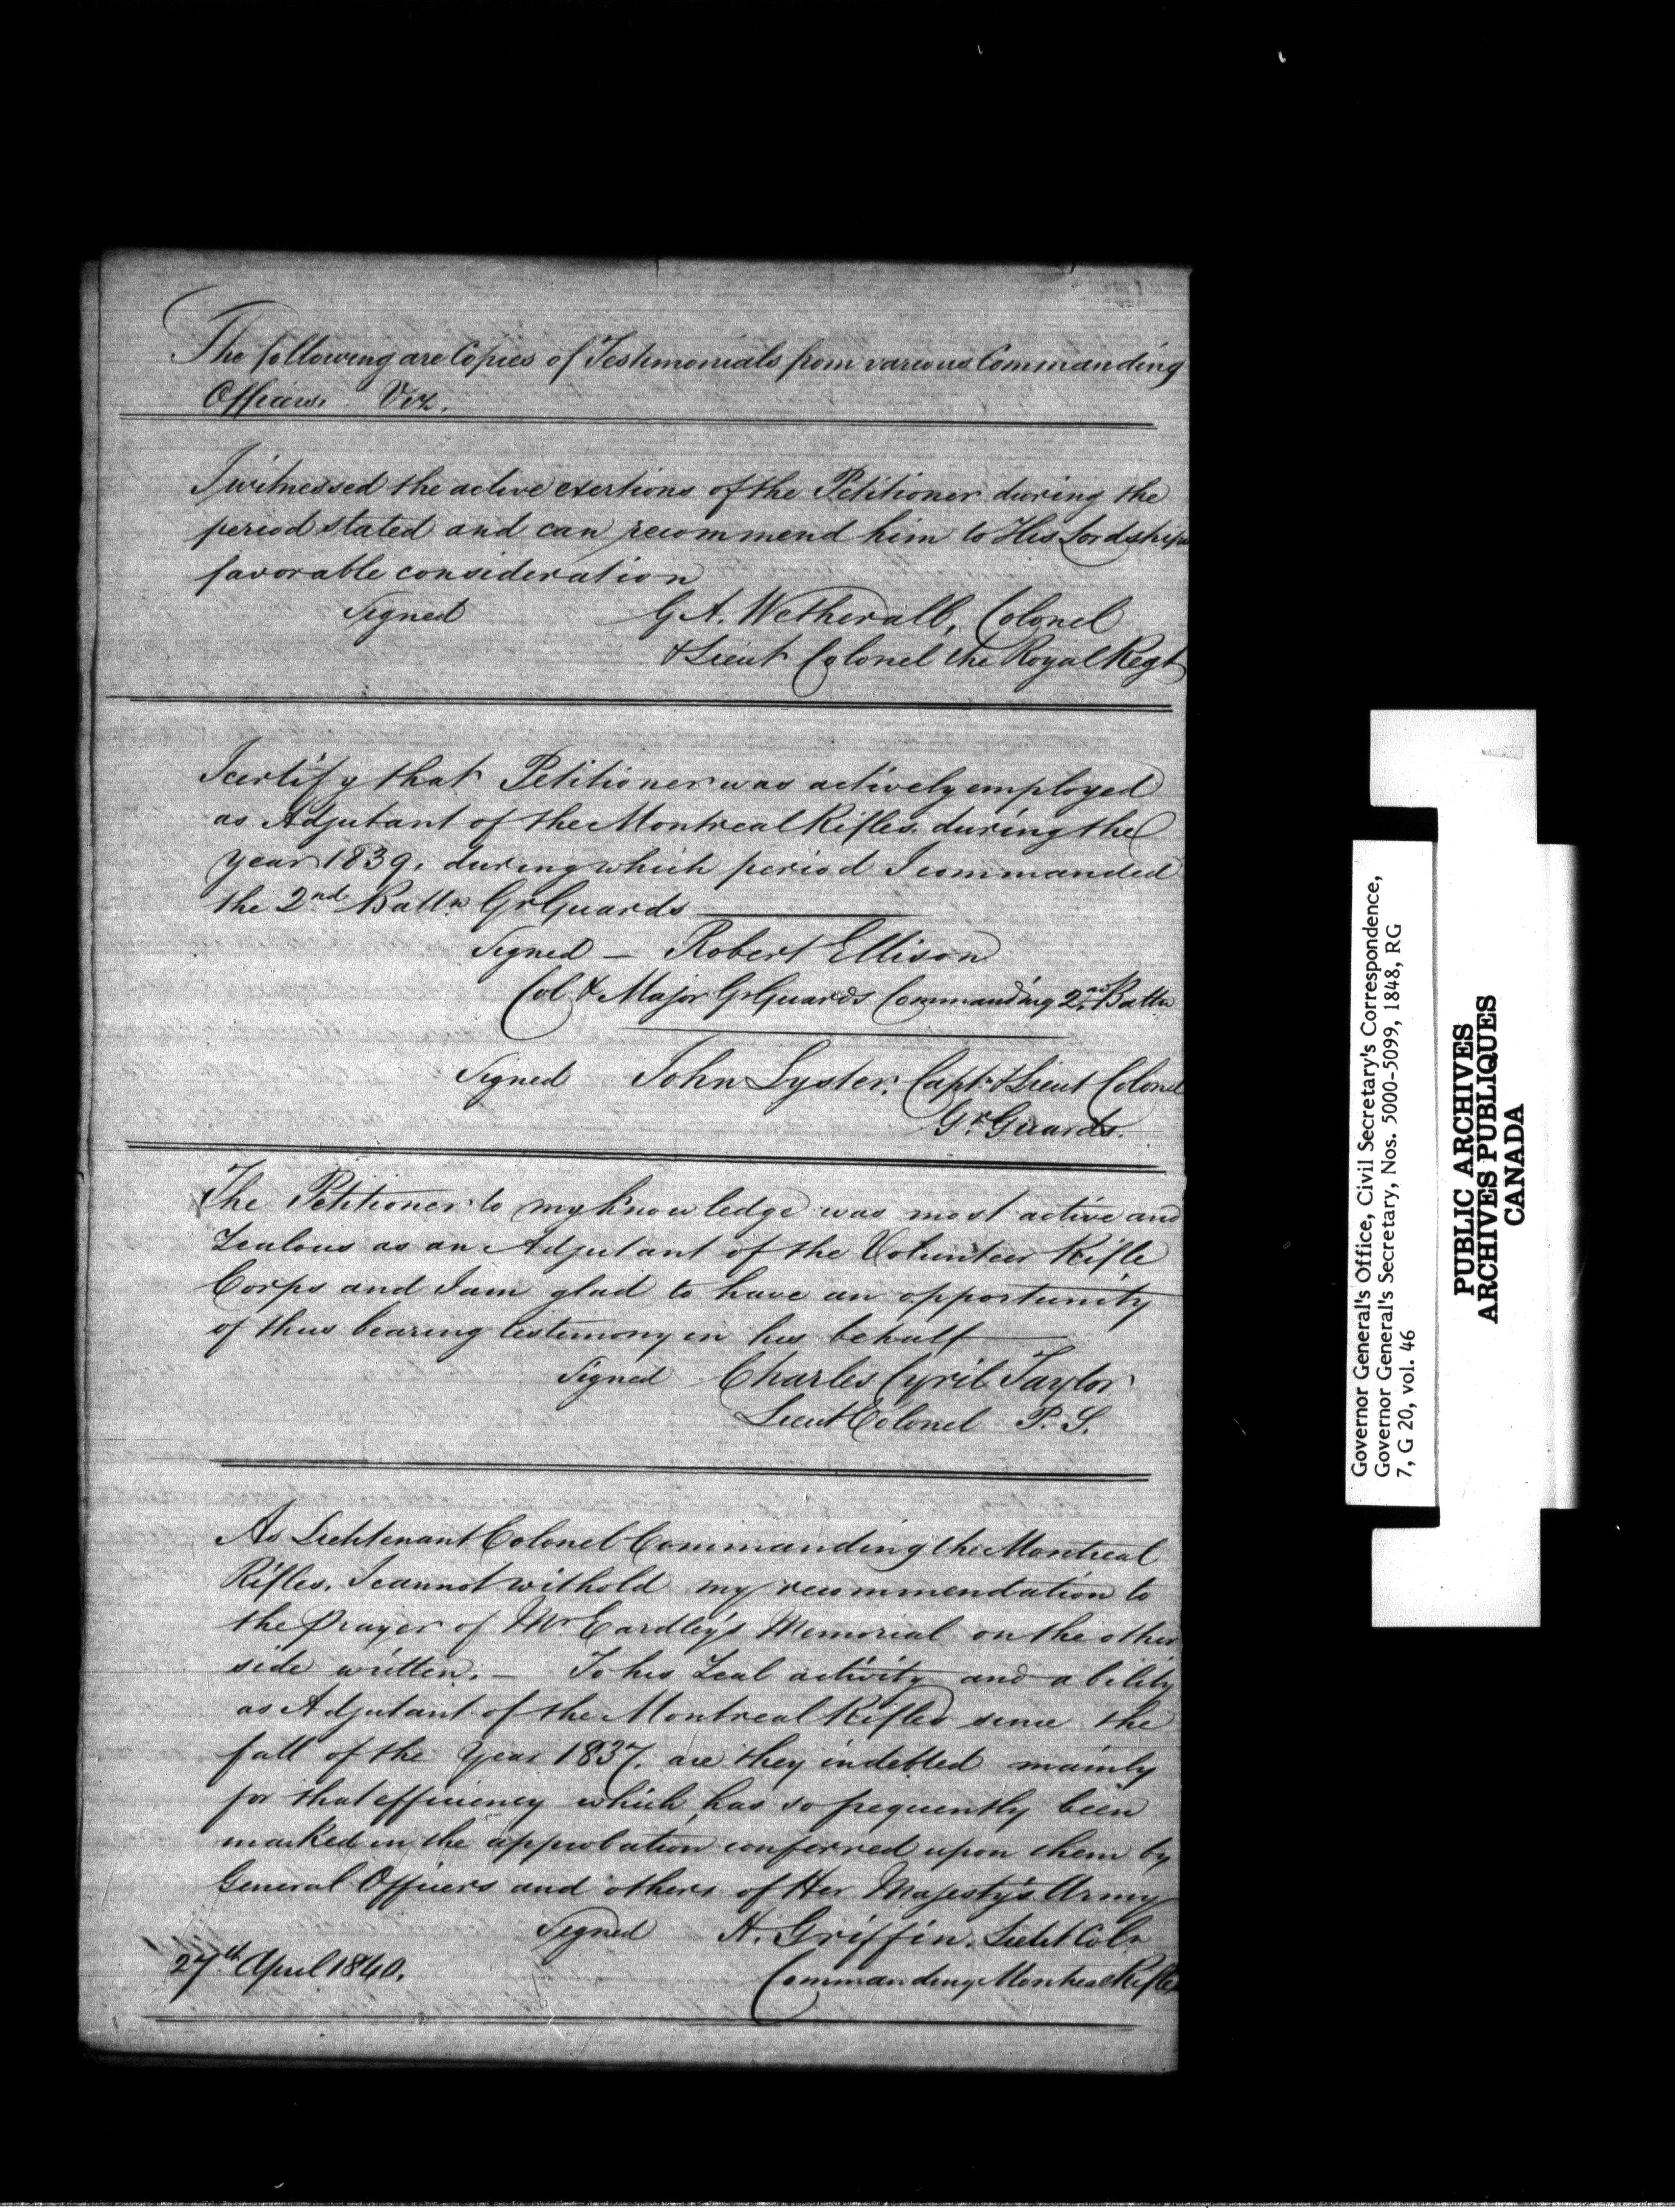 The following are Copies of Testimonials from various Commanding
Officers. Viz.
I witnessed the active exertions of the Petitioner during the
period stated and can recommend him to His Lordships
favorable consideration
Signed G A. Wetherall, Colonel
& Lieut Colonel the Royal Regt
I certify that Petitioner was actively employed
as Adjutant of the Montreal Rifles. during the
year 1839. during which period I commanded
the 2nd Battn Gr Guards
Signed — Robert Ellison
Col & Major Gr Guards Commanding 2nd Battn
Signed John Lyster. Captn & Lieut Colonel
Gr Guards.
The Petitioner to my knowledge was most active and
Zealous as an Adjutant of the Volunteer Rifle
Corps and I am glad to have an opportunity
of thus bearing testimony in his behalf
Signed Charles Cyril Taylor
Lieut Colonel P. S.
As Lieutenant Colonel Commanding the Montreal
Rifles. I cannot withold my recommendation to
the prayer of Mr Eardley's Memorial on the other
side written. — To his Zeal activity and ability
as Adjutant of the Montreal Rifles since the
fall of the Year 1837. are they indebted mainly
for that efficiency which has so frequently been
marked in the approbation conferred upon them by
General Officers and others of Her Majesty's Army
Signed H. Griffin. Lieut Coln
27th April 1840. Commanding Montreal Rifles
Governor General's Office, Civil Secretary's Correspondence,
Governor General's Secretary, Nos. 5000-5099, 1848, RG
7, G 20, vol. 46
PUBLIC ARCHIVES
ARCHIVES PUBLIQUES
CANADA